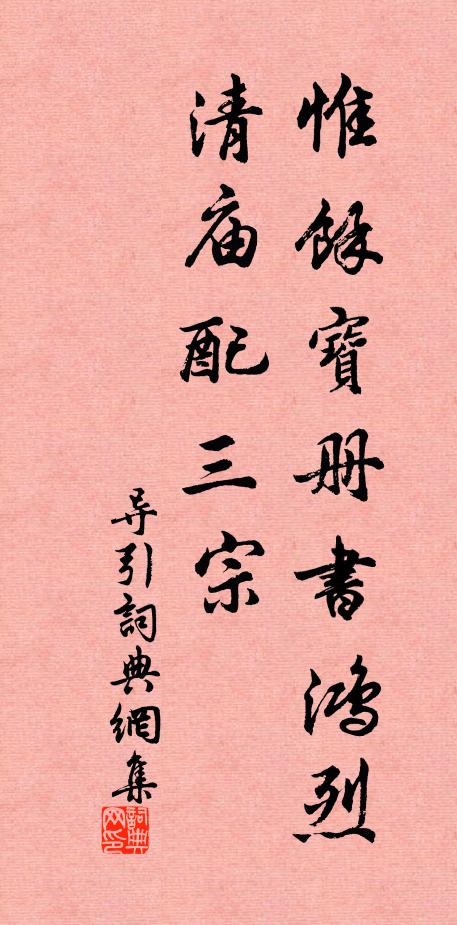 惟餘寶册書鴻烈
清庙配三宗
导引詞典網集
詞典网印